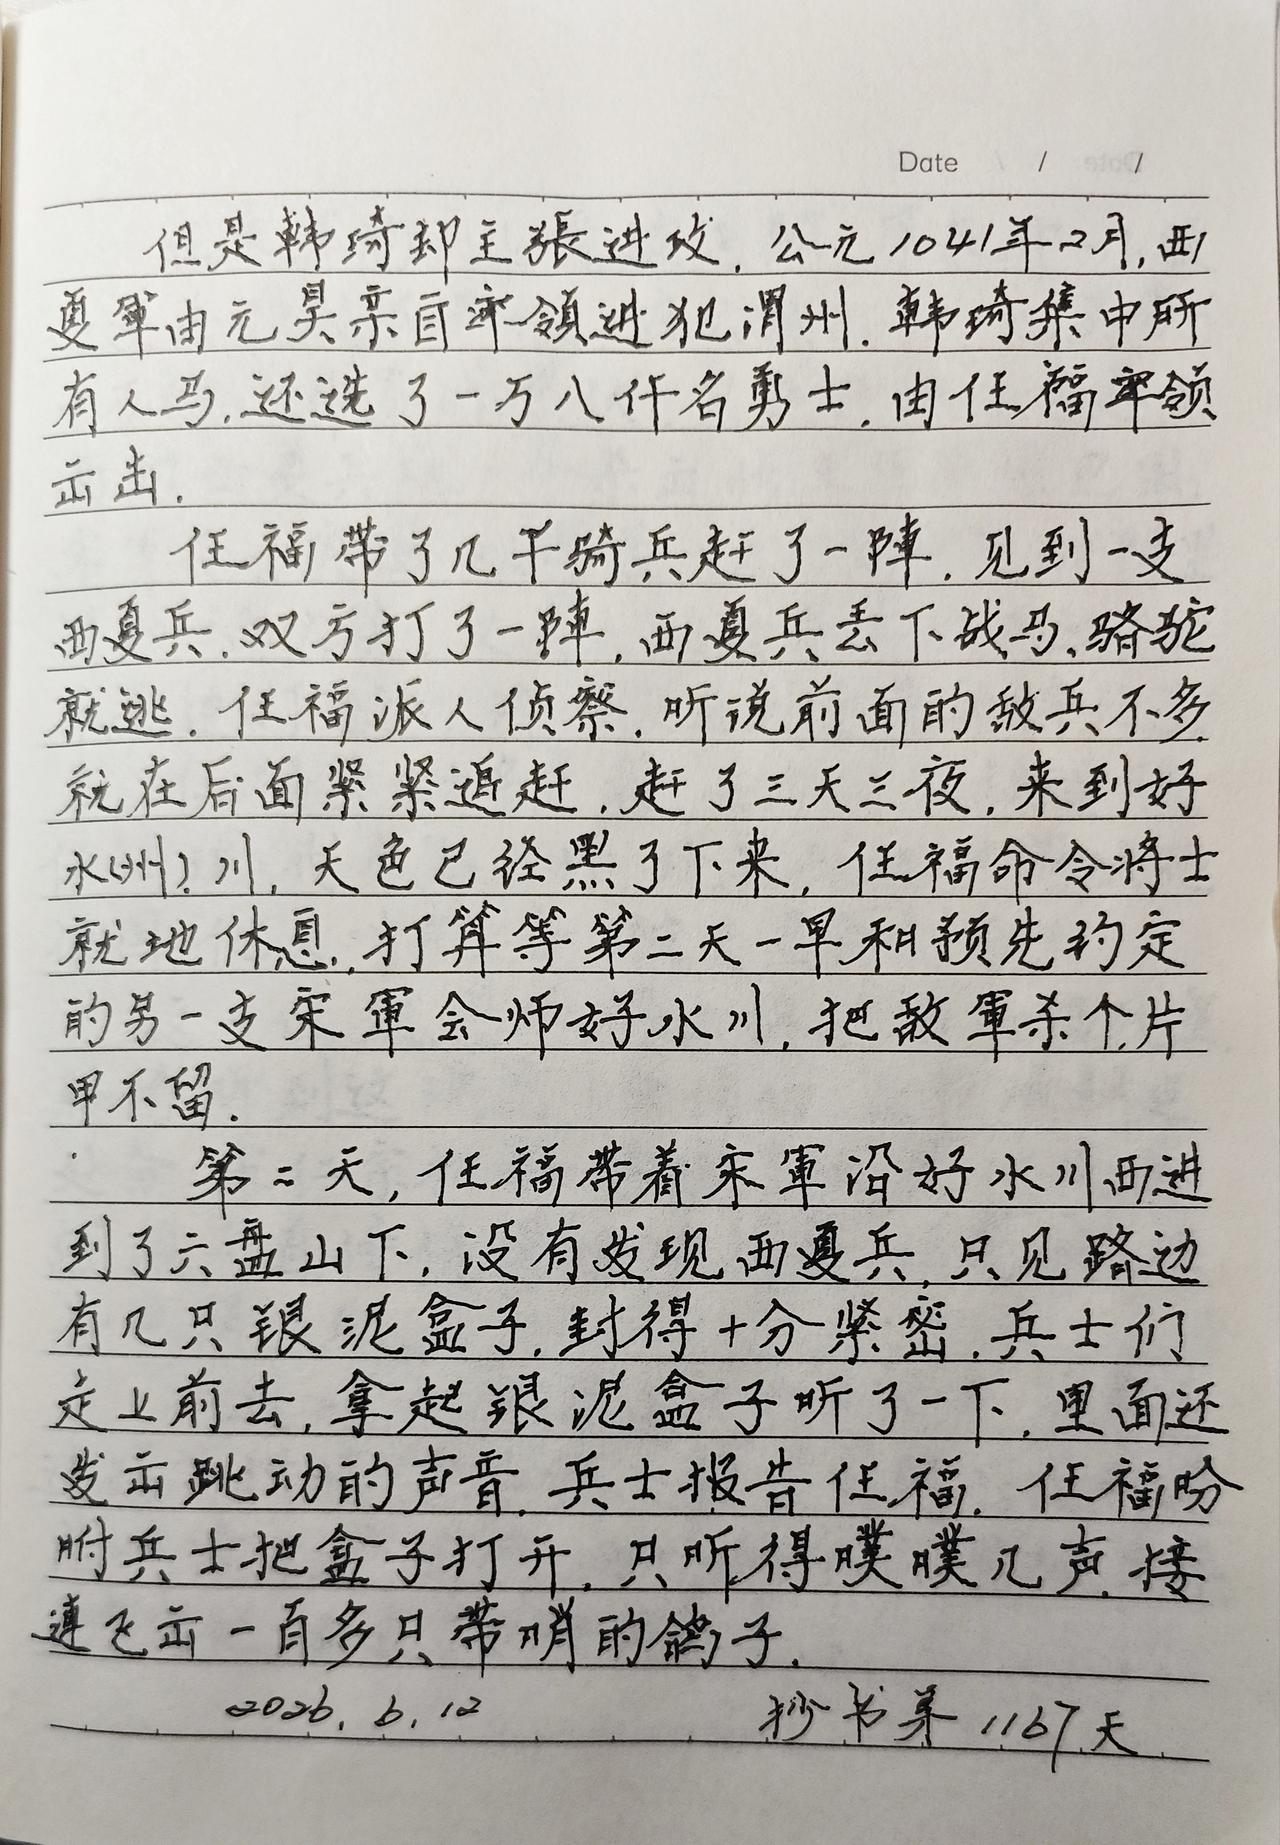 Date / /
但是韩琦却主張进攻. 公元1041年2月, 西
夏軍由元昊亲自率領进犯渭州. 韩琦集中所
有人马, 还选了一万八仟名勇士, 由任福率领
出击.
任福带了几千骑兵赶了一陣, 见到一支
西夏兵, 双方打了一陣, 西夏兵丢下战马、骆驼
就逃. 任福派人侦察, 听说前面的敌兵不多,
就在后面紧紧追赶, 赶了三天三夜, 来到好
水(州?)川, 天色已经黑了下来, 任福命令将士
就地休息, 打算等第二天一早和预先约定
的另一支宋軍会师好水川, 把敌軍杀个片
甲不留.
第二天, 任福带着宋軍沿好水川西进
到了六盘山下, 没有发现西夏兵, 只见路边
有几只银泥盒子, 封得十分紧密, 兵士们
走上前去, 拿起银泥盒子听了一下, 里面还
发出跳动的声音, 兵士报告任福, 任福吩
咐兵士把盒子打开, 只听得噗噗几声, 接
連飞出一百多只带哨的鸽子.
2026. 6. 12 抄书第1167天